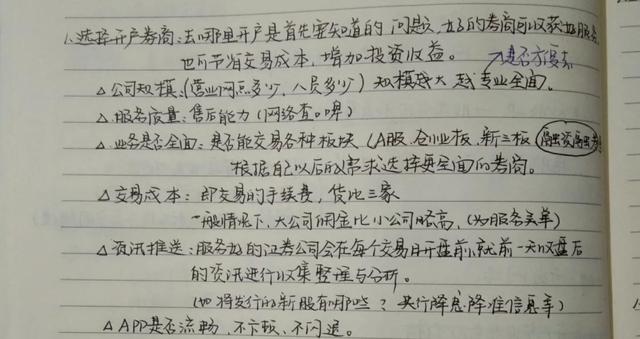 1、选择开户券商：去哪里开户是首先要知道的问题，好的券商可以获好服务
也可节省交易成本，增加投资收益。
是否方便
△公司规模：(营业网点多少，人员多少) 规模越大 越专业全面。
△服务质量：售后能力 (网络查口碑)
△业务是否全面：是否能交易各种板块 (A股、创业板、新三板、融资融券)
根据自己以后的需求选择更全面的券商。
△交易成本：即交易的手续费，货比三家
一般情况下，大公司佣金比小公司略高，(为服务买单)
△资讯推送：服务好的证券公司会在每个交易日开盘前，就前一天收盘后
的资讯进行收集整理与分析。
(如将发行的新股有哪些？央行降息降准信息等)
△APP是否流畅、不卡顿、不闪退。